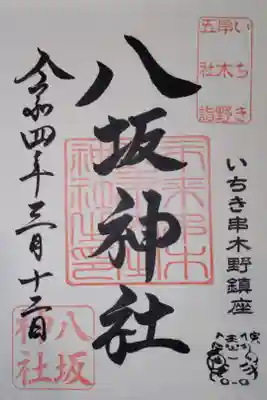 いちき
串木野
五社詣
八坂神社
いちき串木野鎮座
令和四年三月十二日
八坂
神社